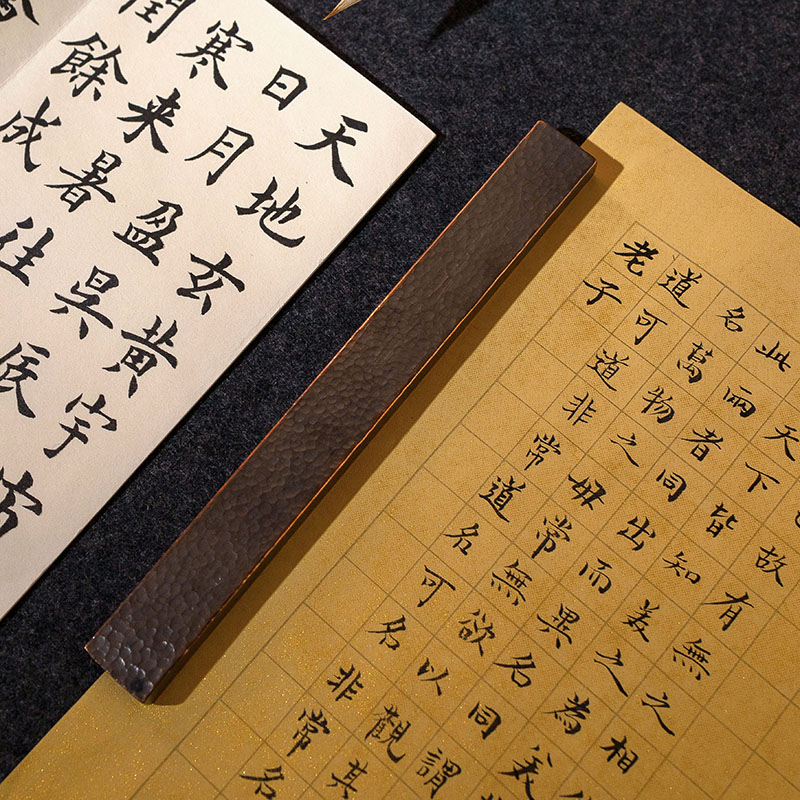 天地玄黄宇宙
日月盈昃辰
寒来暑往
閏餘成
老子
道可道非常道名可名非常名
名萬物之母常無欲以觀其
此兩者同出而異名同謂
天下皆知美之為美
故有無之相